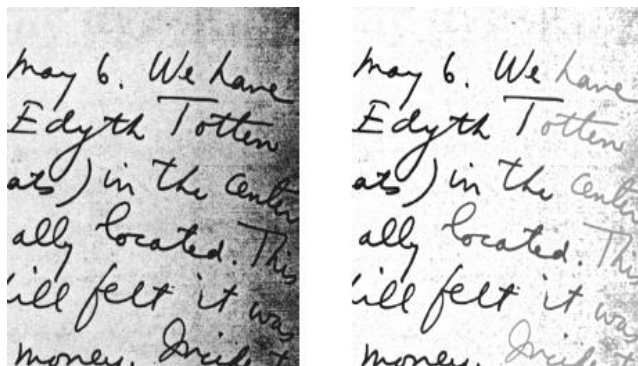 may 6. We have
Edyth Totten
ats) in the center
ally located. This
ill felt it was
money.
may 6. We have
Edyth Totten
ats) in the center
ally located. This
ill felt it was
money.